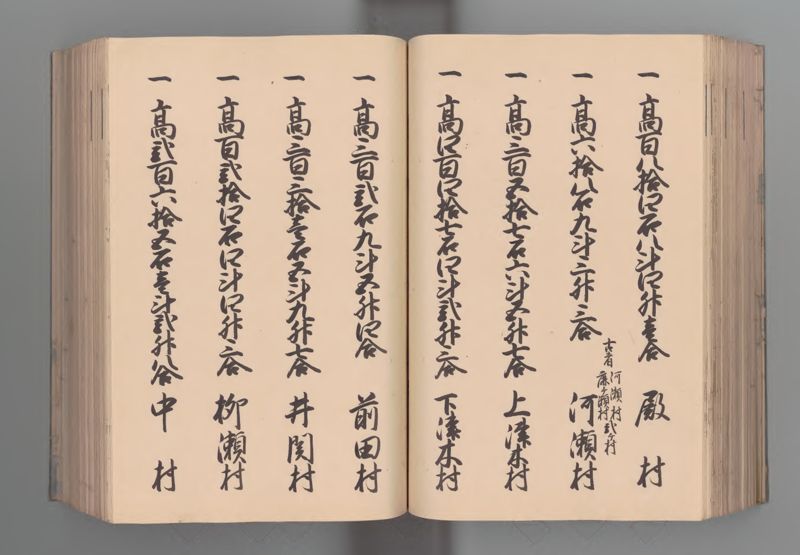 一 高百八拾四石八斗四升壱合 殿村
一 高六拾八石九斗三升三合 河瀬村
古者 河瀬村 藤ヶ瀬村 弐ヶ村
一 高三百五拾七石六斗五升七合 上津木村
一 高四百四拾七石四斗弐升三合 下津木村
一 高三百弐石九斗五升四合 前田村
一 高三百三拾壱石五斗九升七合 井関村
一 高百弐拾四石四斗四升三合 柳瀬村
一 高弐百六拾五石壱斗弐升八合 中村